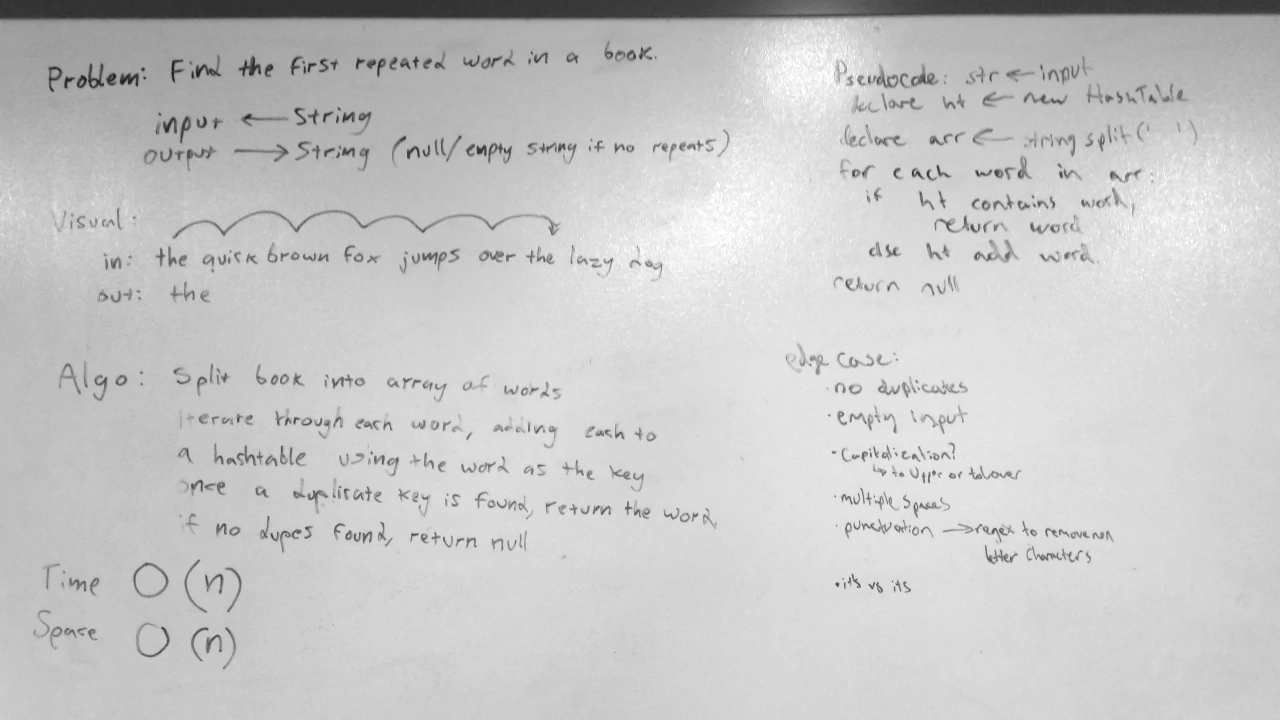 Problem: Find the first repeated word in a book.
input ← String
output → String (null/empty string if no repeats)
Visual:
in: the quick brown fox jumps over the lazy dog
out: the
Algo: Split book into array of words
iterate through each word, adding each to
a hashtable using the word as the key
once a duplicate key is found, return the word.
if no dupes found, return null
Time O(n)
Space O(n)
Pseudocode: str ← input
declare ht ← new HashTable
declare arr ← string split(' ')
for each word in arr:
if ht contains word,
return word
else ht add word.
return null
edge case:
· no duplicates
· empty input
· Capitalization?
↳ to Upper or tolower
· multiple spaces
· punctuation → regex to remove non
letter characters
· it's vs its